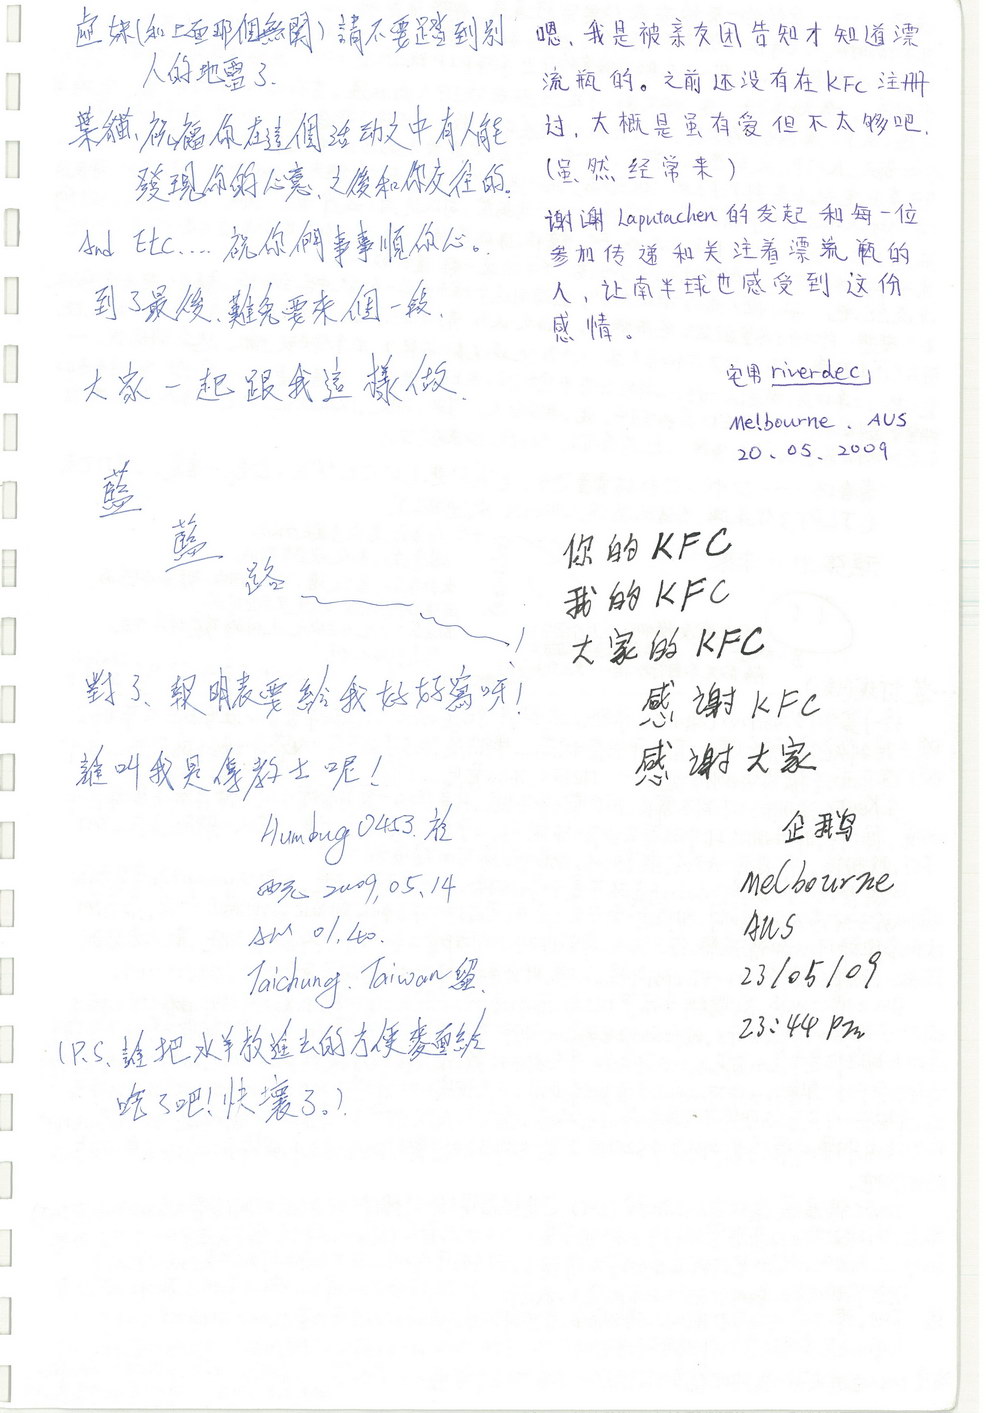 妹(和上面那個無關)請不要踏到別
人的地雷了.
葉貓、祝福你在這個活動之中有人能
發現你的心意、之後和你交往的.
And Etc.... 祝你們事事順你心。
到了最後、難免要來個一段.
大家一起跟我這樣做.
藍
藍
路
!
對了、報明表要給我好好寫呀!
誰叫我是傳教士呢!
Humbug0453.於
西元 2009,05,14
AM 01.40.
Taichung. Taiwan 留.
(P.S. 誰把水羊放進去的方便麥面給
啃了吧!快壞了。)
嗯,我是被亲友团告知才知道漂
流瓶的。之前还没有在KFC注册
过,大概是虽有爱但不太够吧.
(虽然经常来)
谢谢Laputachen的发起和每一位
参加传递和关注着漂流瓶的
人,让南半球也感受到这份
感情。
宅男 riverdec
Melbourne. AUS
20.05.2009
你的KFC
我的KFC
大家的KFC
感谢KFC
感谢大家
企鹅
Melbourne
AUS
23/05/09
23:44 Pm